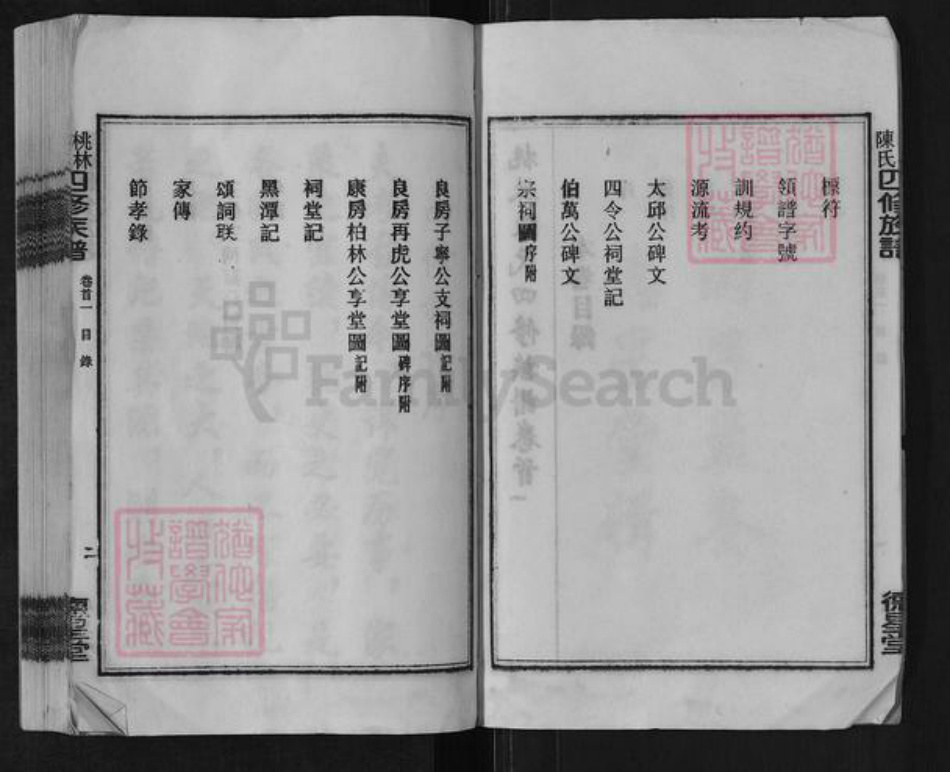 陳氏四修族譜
德星堂
標符
領譜字號
訓規約
源流考
太邱公碑文
四令公祠堂記
伯萬公碑文
宗祠圖序附
良房子寧公支祠圖記附
良房再虎公享堂圖碑序附
康房柏林公享堂圖記附
祠堂記
黑潭記
頌詞联
家傳
節孝錄
桃林四修族譜
卷首一
目錄
二
德星堂
FamilySearch